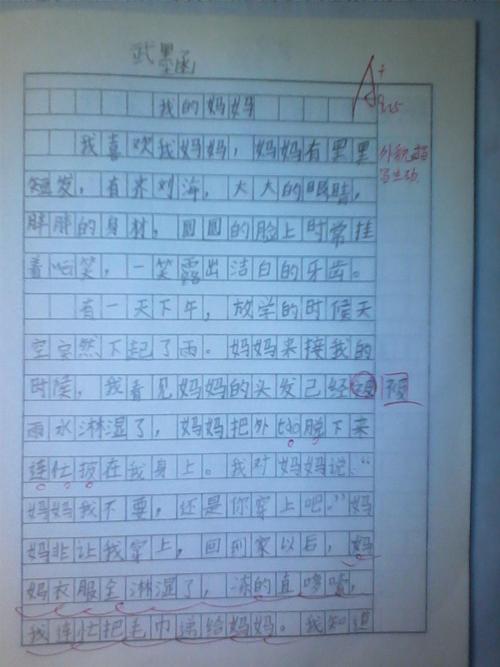 武墨函
A+
9.25
我的妈妈
我喜欢我妈妈，妈妈有黑黑
短发，有齐刘海，大大的眼睛，
胖胖的身材，圆圆的脸上时常挂
着 笑，一笑露出洁白的牙齿。
有一天下午，放学的时候天
空突然下起了雨。妈妈来接我的
时候，我看见妈妈的头发已经 被
雨水淋湿了，妈妈把外 脱下来
连忙 在我身上。我对妈妈说，“
妈妈我不要，还是你穿上吧。”妈
妈非让我穿上，回到家以后，妈
妈衣服全淋湿了，冻的直哆嗦，
我连忙把毛巾递给妈妈。我知道
外貌
写生动